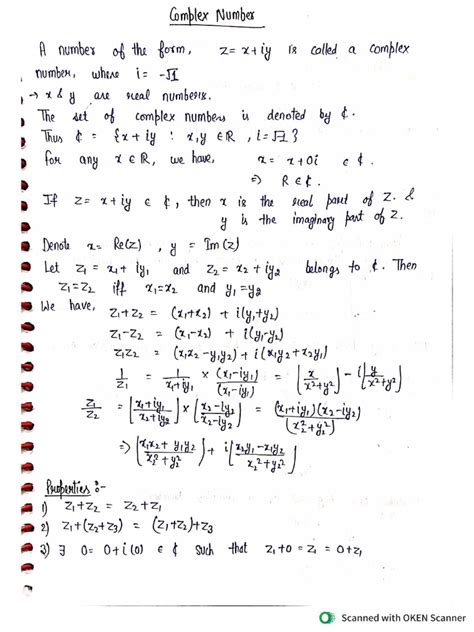 Complex Number
A number of the form, z = x + iy is called a complex
number, where i = -√1
→ x & y are real numbers.
The set of complex numbers is denoted by ₵.
Thus ₵ = {x + iy : x, y ∈ R, i = √-1}
for any x ∈ R, we have, x = x + 0i ∈ ₵.
⇒ R ∈ ₵.
If z = x + iy ∈ ₵, then x is the real part of z. &
y is the imaginary part of z.
Denote x = Re(z), y = Im(z)
Let z₁ = x₁ + iy₁ and z₂ = x₂ + iy₂ belongs to ₵. Then
z₁ = z₂ iff x₁ = x₂ and y₁ = y₂
We have, z₁ + z₂ = (x₁ + x₂) + i(y₁ + y₂)
z₁ - z₂ = (x₁ - x₂) + i(y₁ - y₂)
z₁z₂ = (x₁x₂ - y₁y₂) + i(x₁y₂ + x₂y₁)
1/z₁ = 1/(x₁ + iy₁) × (x₁ - iy₁)/(x₁ - iy₁) = [x/(x² + y²)] - i[y/(x² + y²)]
z₁/z₂ = [(x₁ + iy₁)/(x₂ + iy₂)] × [(x₂ - iy₂)/(x₂ - iy₂)] = (x₁ + iy₁)(x₂ - iy₂)/(x₂² + y₂²)
⇒ [(x₁x₂ + y₁y₂)/(x₂² + y₂²)] + i[(x₂y₁ - x₁y₂)/(x₂² + y₂²)]
Properties :-
1) z₁ + z₂ = z₂ + z₁
2) z₁ + (z₂ + z₃) = (z₁ + z₂) + z₃
3) ∃ 0 = 0 + i(0) ∈ ₵ such that z₁ + 0 = z₁ = 0 + z₁
Scanned with OKEN Scanner